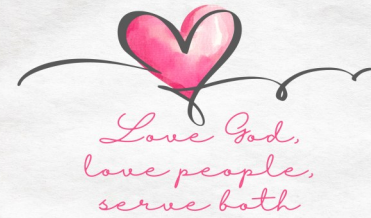 Love God,
love people,
serve both